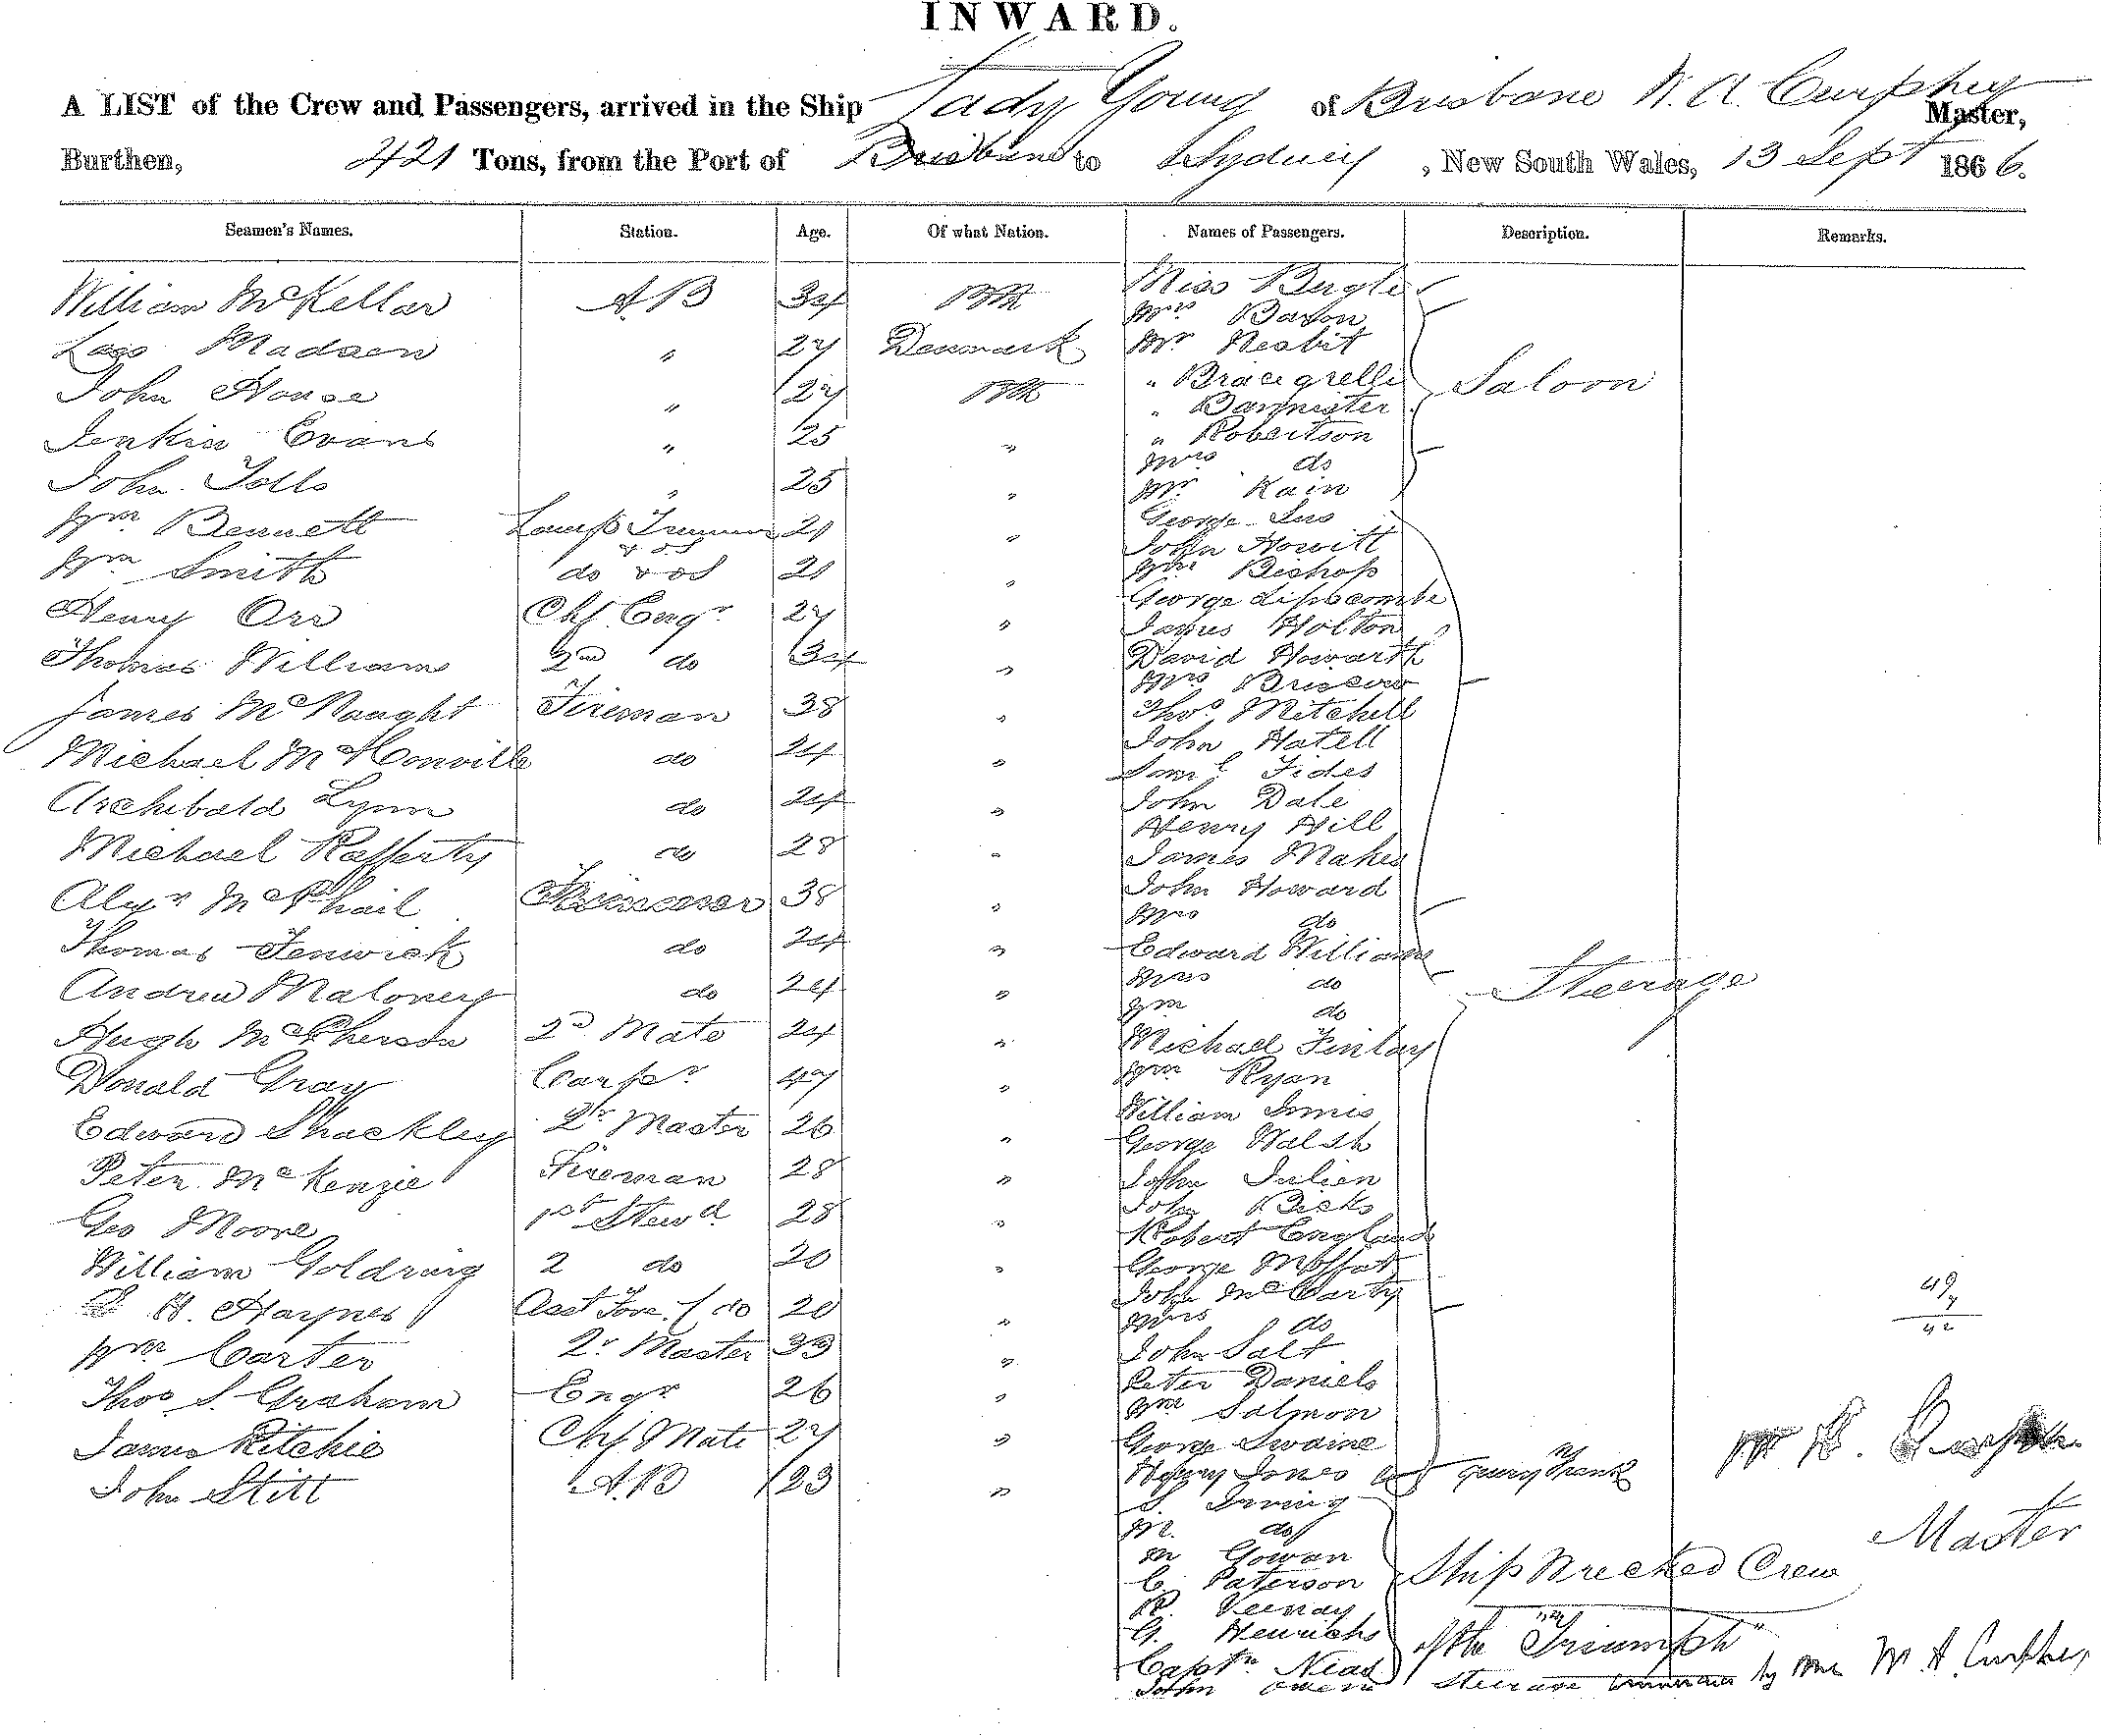 INWARD.
A LIST of the Crew and Passengers, arrived in the Ship Lady Young of Brisbane W. A. Curphey Master,
Burthen, 421 Tons, from the Port of Brisbane to Sydney, New South Wales, 13 Sept 1866.
Seamen's Names. Station. Age. Of what Nation. Names of Passengers. Description. Remarks.
William McKellar A.B 34
John House " 27
Jenkin Evans " 25 "
John Tolls " 25 "
Wm Bennett 21 "
Wm Smith do & os 21 "
Henry Orr Chf Engr 27 "
Thomas William 2nd do 34 "
James McNaught Fireman 38 "
Michael McConville do 24 "
Archibald Lynn do 24 "
Michael Rafferty do 28 "
Alexr McPhail Trimmer 38 "
Thomas Fenwick do 24 "
Andrew Maloney do 24 "
Hugh McPherson 2d Mate 24 "
Donald Gray Carpr 47 "
Edward Shackley 2r Master 26 "
Peter McKenzie Fireman 28 "
Geo Moore 1st Stewd 28 "
William Goldring 2 do 20 "
H. Haynes do 20 "
Wm Carter 2r Master 33 "
Thos S. Graham Engr 26 "
James Ritchie Chf Mate 27 "
John Stitt A.B 23 "
Madsen " 27 Denmark
Miss
Mrs
Mr Nesbit
"
" Bannister
" Robertson
Mrs do
Mr Kain
Saloon
George
John Howitt
Wm Bishop
George Lipscombe
James Holton
David Howarth
Mrs Briscow
Thos Mitchell
John Hatell
Saml Fides
John Dale
Henry Hill
James Maher
John Howard
Mrs do
Edward Williams
Mrs do
Wm do
Michael Finlay
Wm Ryan
William Innis
George Walsh
John Julien
John Bicks
Robert England
George Moffat
John McCarty
Mrs do
John Salt
Peter Daniels
Wm Salmon
George Swaine
Henry Jones
Steerage
S. Irving
W. do
M Gowan
C. Paterson
R.
G. Henrichs
Captn
John Owens Steerage
Ship Wrecked Crew
of the "Triumph"
by me W. A. Curphey
49
7
42
Master